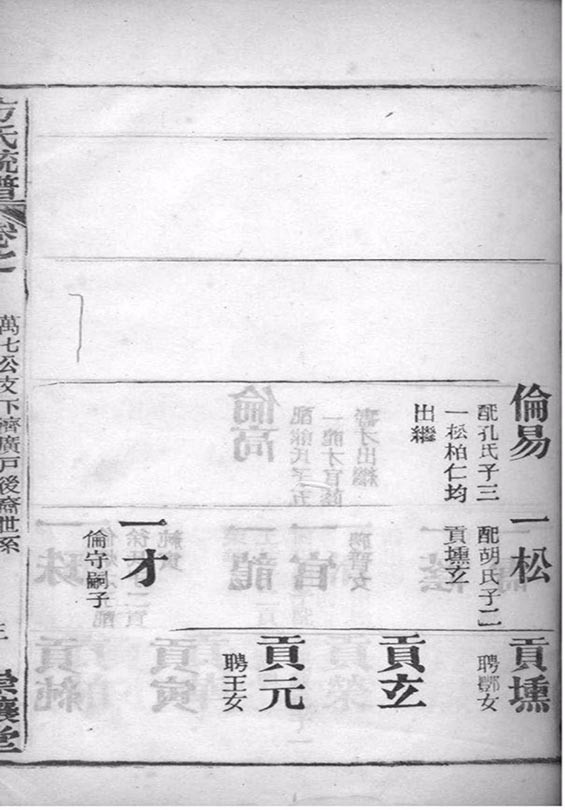 倫易
配孔氏子三
一松柏仁均
出繼
一松
配胡氏子二
貢壎玄
一才
倫守嗣子
貢壎
聘酆女
貢玄
貢元
聘王女
方氏統譜
卷之
萬七公支下濟廣戶後裔世系
崇讓堂